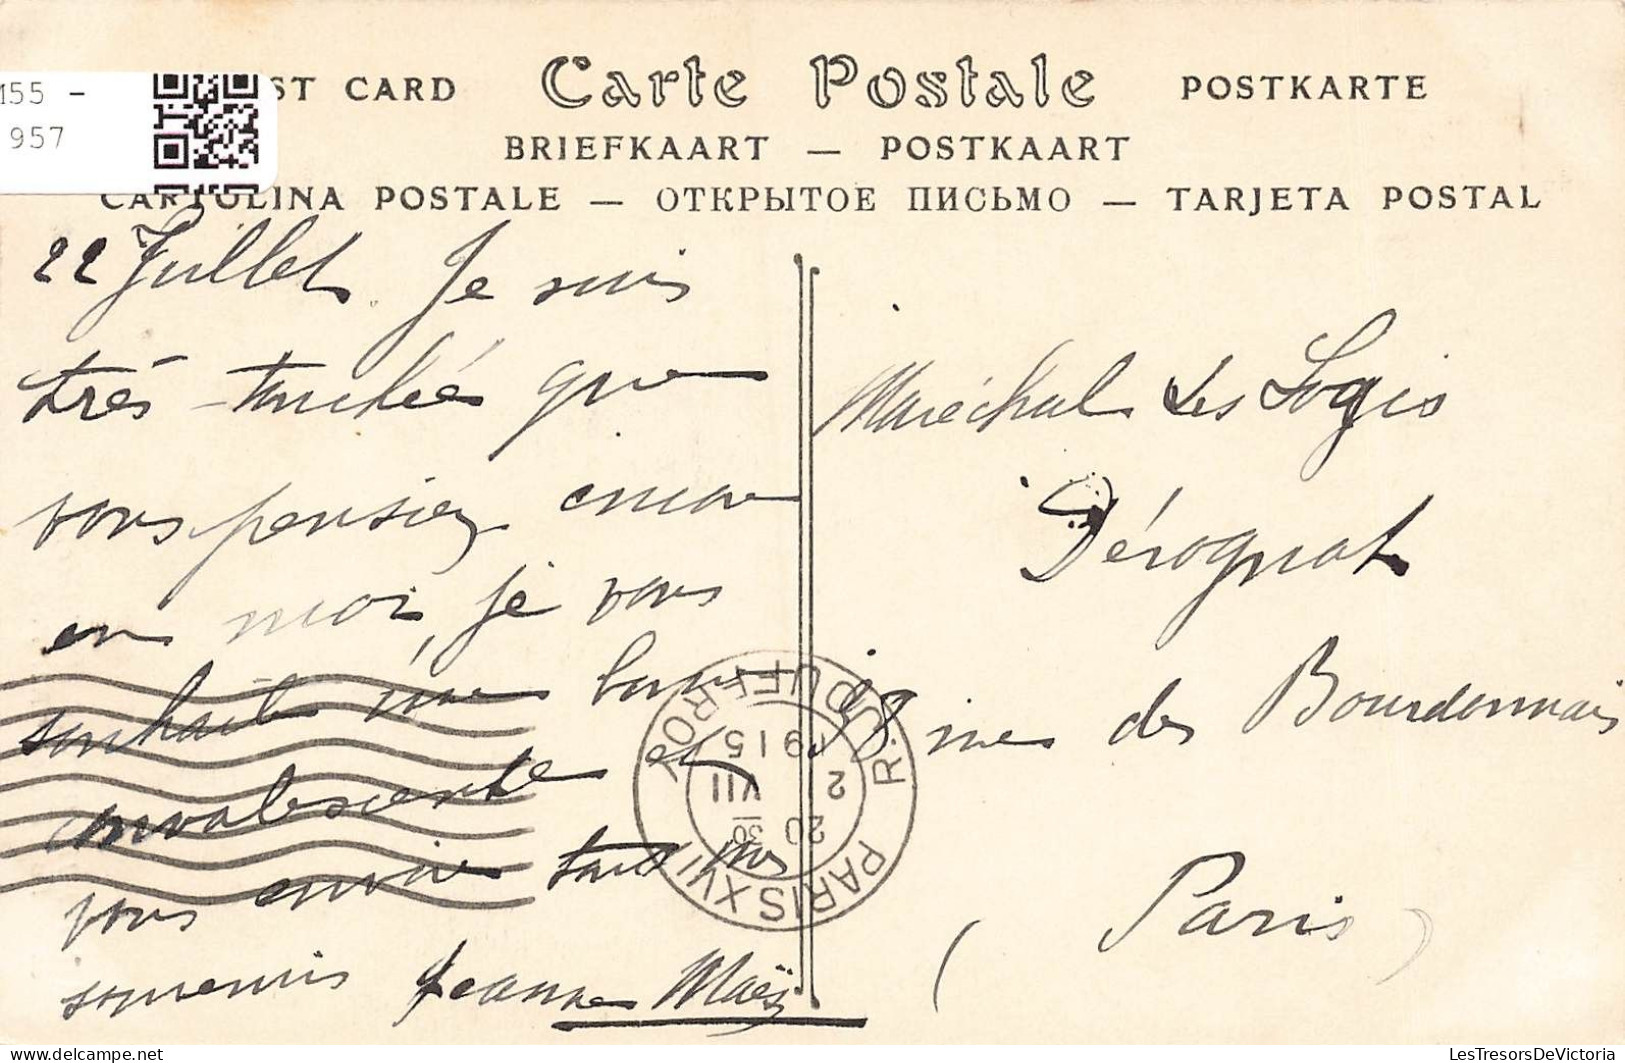 M55 -
957
ST CARD Carte Postale POSTKARTE
BRIEFKAART — POSTKAART
CARTOLINA POSTALE — ОТКРЫТОЕ ПИСЬМО — TARJETA POSTAL
22 Juillet. Je suis
très touchée que
vous pensiez encore
en moi, je vous
souhaite une bonne
convalescente et
vous envoie tous mes
souvenirs Jeanne Maës
Maréchal des Logis
Dérognat
des Bourdonnais
(Paris)
PARIS XVII
20 VII
1915
LesTresorsDeVictoria